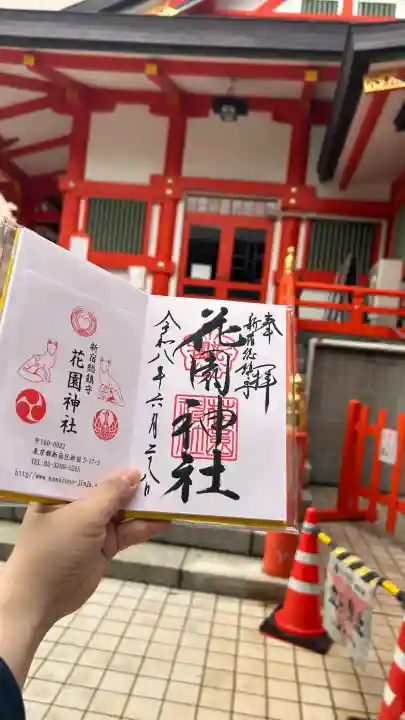 奉拝
新宿総鎮守
花園神社
令和八年六月二十八日
新宿総鎮守
花園神社
〒160-0022
東京都新宿区新宿 5-17-3
TEL.03-3209-5265
http://www.hanazono-jinja.